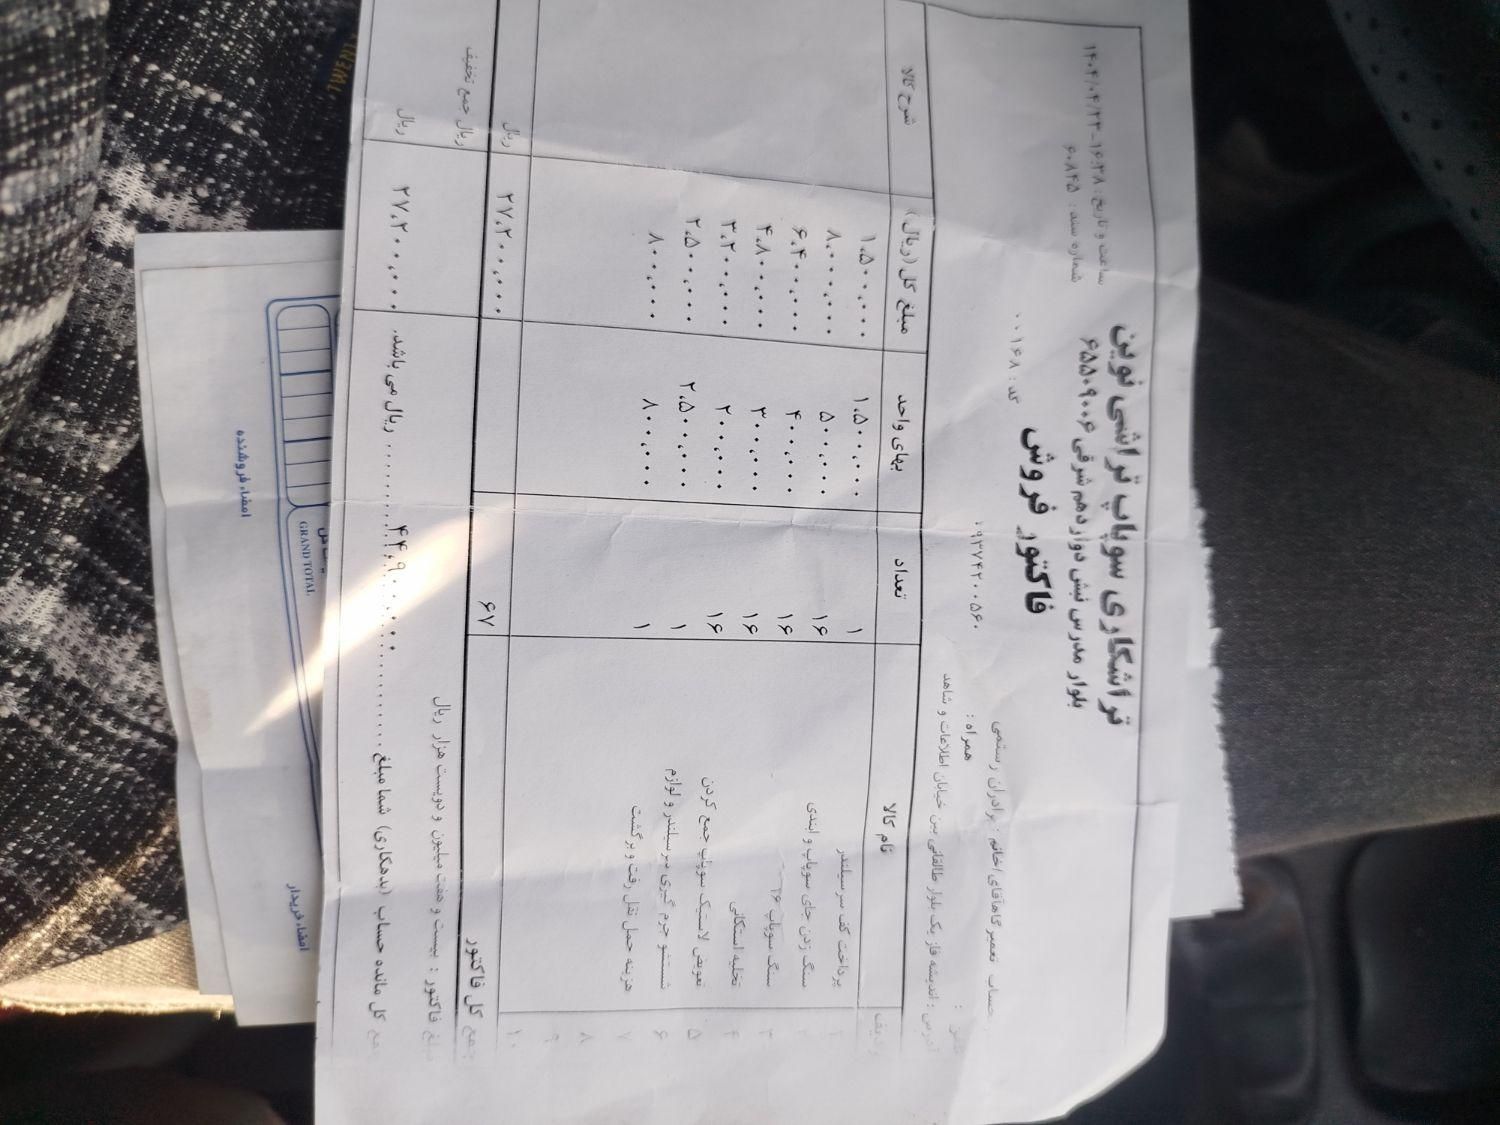 تراشکاری سوپاپ تراشی نوین
بلوار مدرس نبش دوازدهم شرقی ۶۵۵۰۹۰۰۶
فاکتور فروش
ساعت و تاریخ: ۱۶:۳۸-۱۴۰۴/۰۴/۲۳
شماره سند: ۶۰۸۴۵
حساب تعمیرگاهاقای/خانم: برادران رستمی
کد: ۰۰۱۶۸
همراه: ۰۹۳۷۴۲۰۰۵۶۰
آدرس: اندیشه فاز یک بلوار طالقانی بین خیابان اطلاعات و شاهد
ردیف نام کالا تعداد بهای واحد مبلغ کل (ریال) شرح کالا
۱ پرداخت کف سرسیلندر ۱ ۱،۵۰۰،۰۰۰ ۱،۵۰۰،۰۰۰
۲ سنگ زدن جای سوپاپ و ابندی ۱۶ ۵۰۰،۰۰۰ ۸،۰۰۰،۰۰۰
۳ سنگ سوپاپ ۱۶ ۱۶ ۴۰۰،۰۰۰ ۶،۴۰۰،۰۰۰
۴ تخلیه استکانی ۱۶ ۳۰۰،۰۰۰ ۴،۸۰۰،۰۰۰
۵ تعویض لاستیک سوپاپ جمع کردن ۱۶ ۲۰۰،۰۰۰ ۳،۲۰۰،۰۰۰
۶ شستشو جرم گیری سرسیلندر و لوازم ۱ ۲،۵۰۰،۰۰۰ ۲،۵۰۰،۰۰۰
۷ هزینه حمل نقل رفت و برگشت ۱ ۸۰۰،۰۰۰ ۸۰۰،۰۰۰
۸
۹
۱۰
جمع کل فاکتور ۶۷ ۲۷،۲۰۰،۰۰۰ ریال
مبلغ فاکتور: بیست و هفت میلیون و دویست هزار ریال
ریال جمع تخفیف
جمع کل مانده حساب (بدهکاری) شما مبلغ ریال می باشد. ۲۷،۲۰۰،۰۰۰ ریال
GRAND TOTAL
امضاء خریدار
امضاء فروشنده